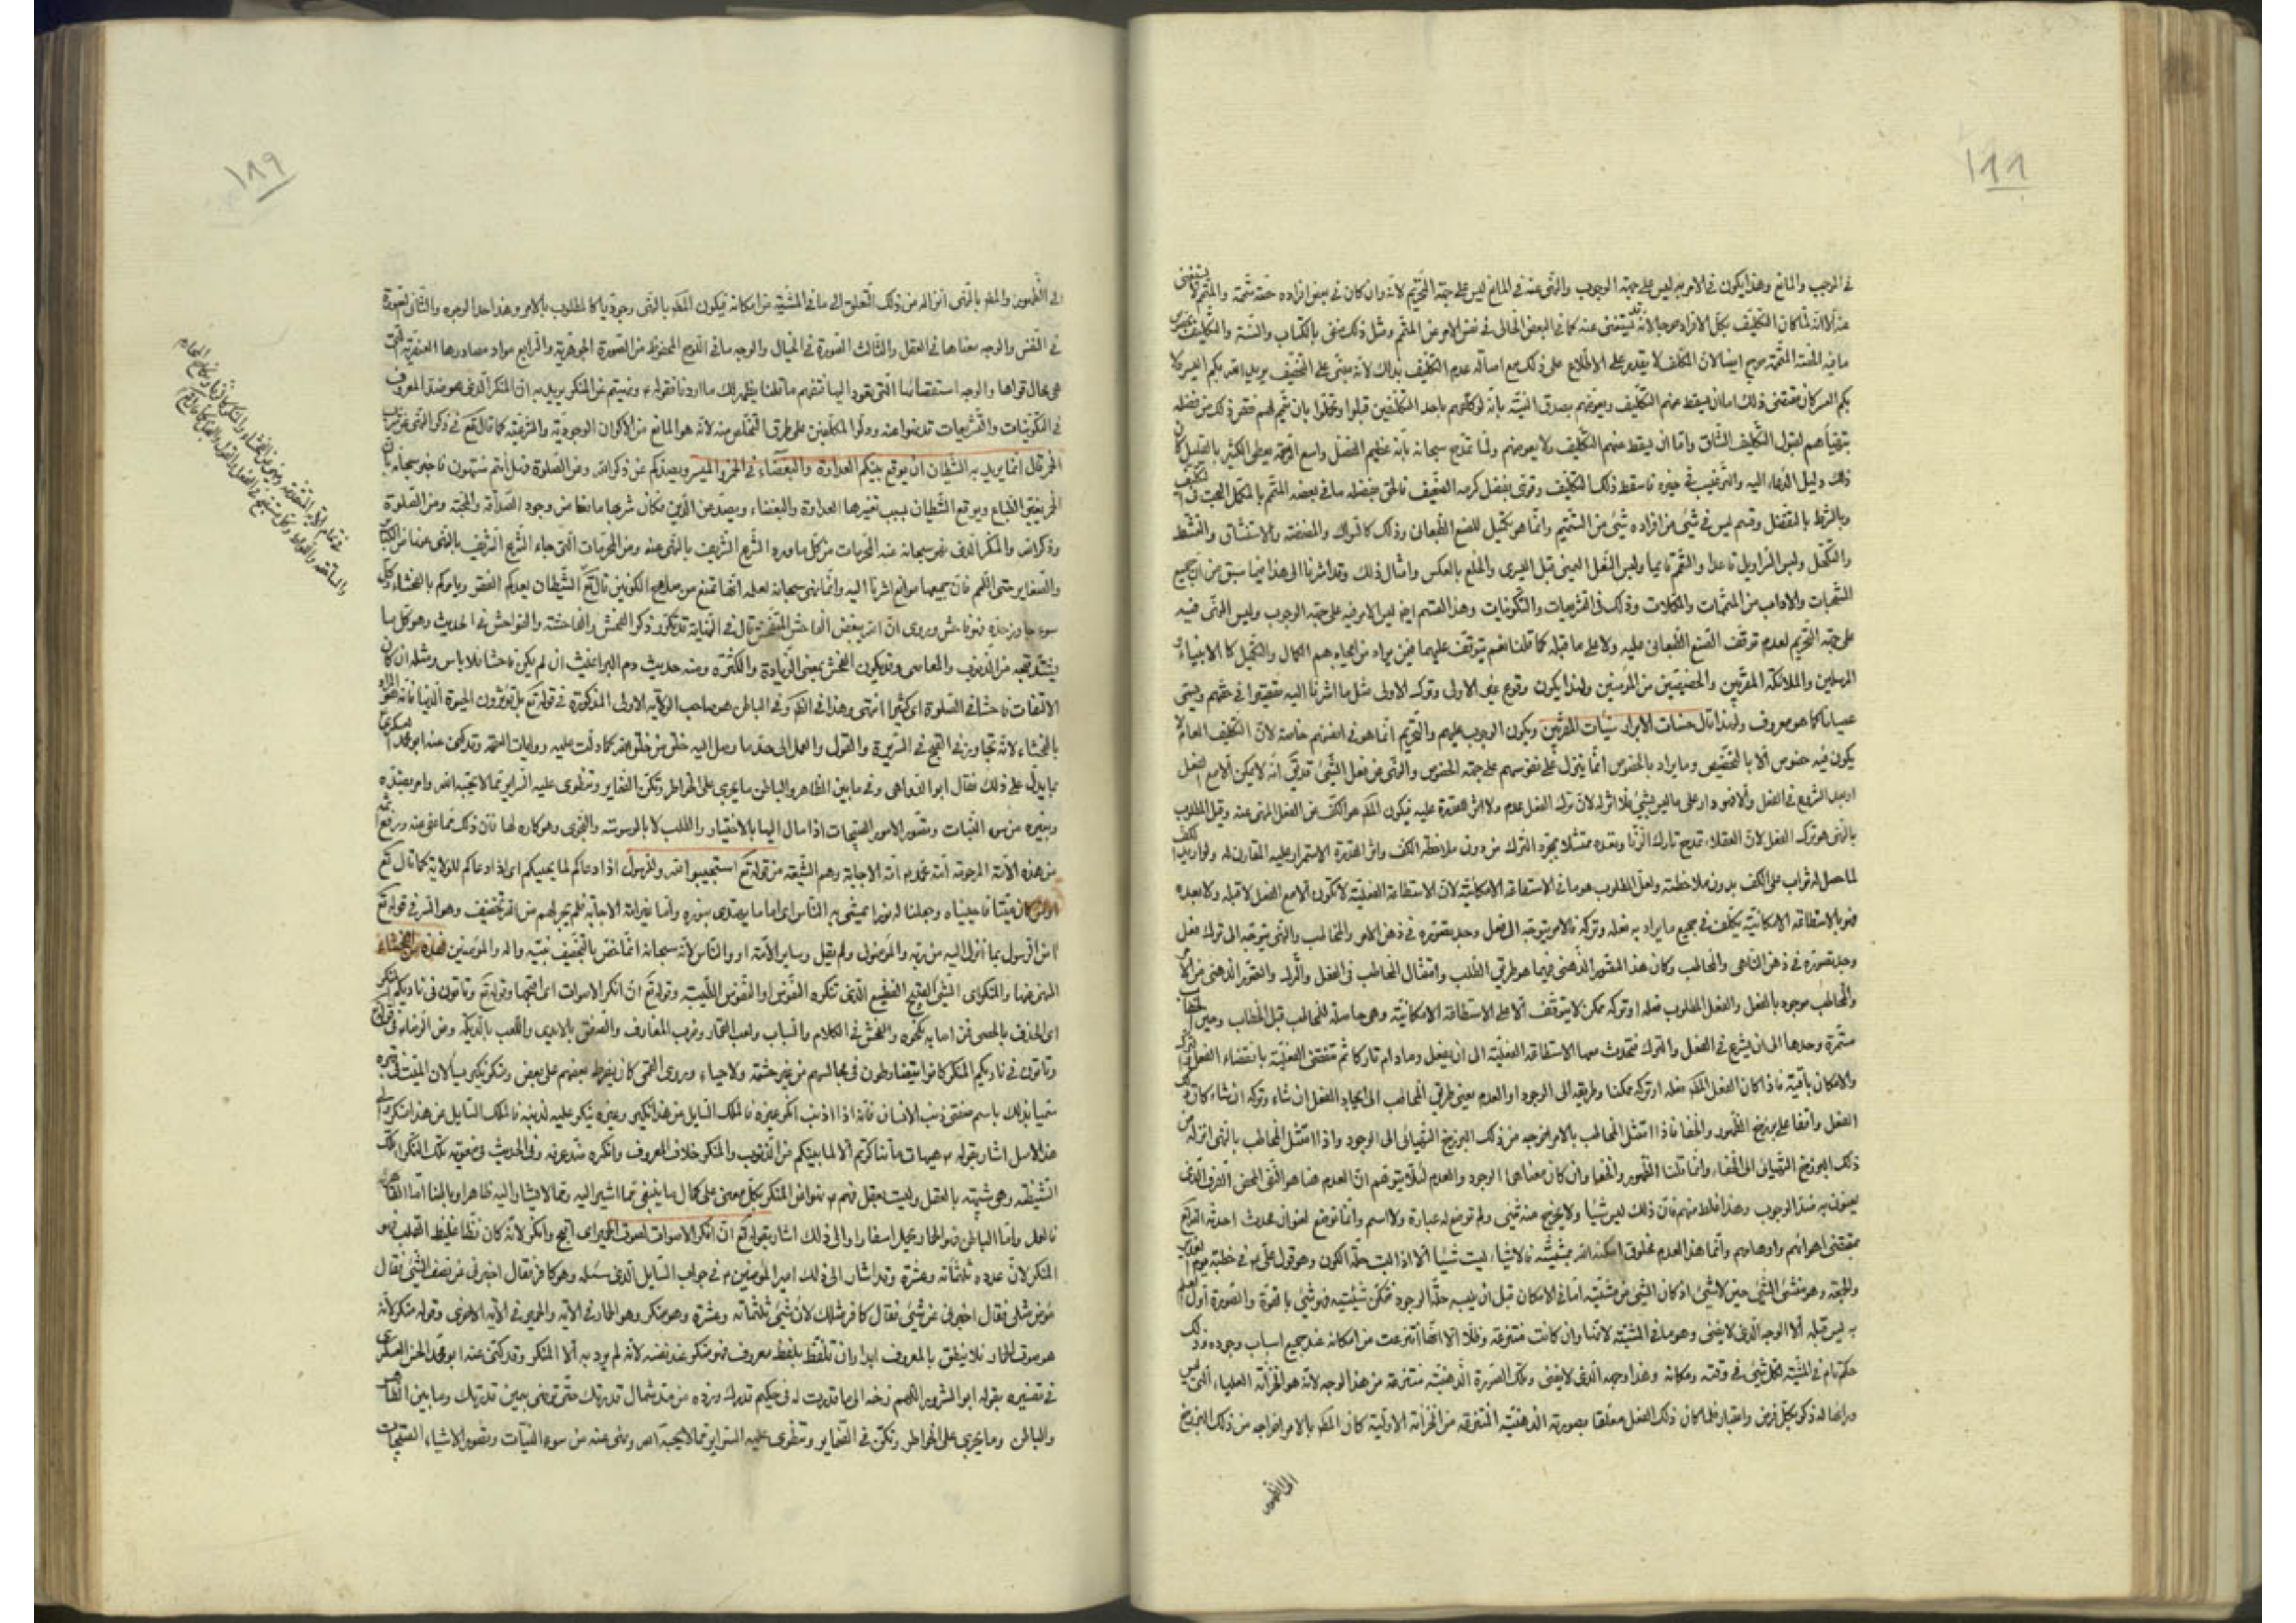 ١٨٨
في الموجب والمانع وهذا يكون في الامر به ليس على جهة الوجوب والنهي عنه في المانع ليس على جهة التحريم لانه وان كان في بعض افراده حصة متممة والمتمم لا يستغنى
عنه الا انه لما كان التكليف بكل الافراد حرجا لانه قد يستغنى عنه كما في البعض الخالي في نفس الامر عن المتمم ومثل ذلك منفي بالكتاب والسنة والتكليف
ما فيه الحصة المتممة حرج ايضا لان المكلف لا يقدر على الاطلاع على ذلك مع اصالة عدم التكليف بذلك لانه مبني على التخفيف يريد الله بكم اليسر ولا
بكم العسر كان مقتضى ذلك اما ان يسقط عنهم التكليف ويعوضهم بصدق النية بانه لو كلفهم باحد التكلفين قبلوا وتحملوا بان يتمم لهم فقرة ذلك من فضله
بتهيأهم لقبول التكليف الشاق واما ان يسقط عنهم التكليف ولا يعوضهم ولما تمدح سبحانه بانه عظيم الفضل واسع الرحمة يعطى الكثير بالقليل كان
ذلك دليل الدعاء اليه والترغيب في خيره فاسقط ذلك التكليف
وبالشرط بالمفضل وقسم ليس في شئ من افراده شئ من التتميم وانما هو تكميل للصنع الطبعاني وذلك كالسواك والمضمضة والاستنشاق والتمشط
والتكحل ولبس السراويل قاعدا والتعمم قائما ولبس النعل اليمنى قبل اليسرى والخلع بالعكس وامثال ذلك وقد اشرنا الى هذا فيما سبق من ان جميع
المستحبات والاداب من المتممات والمكملات وذلك في التشريعات والتكوينات وهذا القسم ايضا ليس الامر فيه على جهة الوجوب وليس النهي فيه
على جهة التحريم لعدم توقف الصنع الطبعاني عليه ولا على ما قبله كما قلنا نعم يتوقف عليهما فيمن يراد من ايجادهم الكمال والتكميل كالانبياء
المرسلين والملائكة المقربين والخصيصين من المؤمنين ولهذا يكون وقوع غير الاولى وترك الاولى مثل ما اشرنا اليه معصية في حقهم ويسمى
عصيانا كما هو معروف ولهذا قال حسنات الابرار سيئات المقربين ويكون الوجوب عليهم والتحريم انما هو في انفسهم خاصة لان التكليف العام لا
يكون فيه خصوص الا بالتخصيص وما يراد بالخصوص انما ينزل على نفوسهم على جهة الخصوص والنهي عن فعل الشئ قد يق انه لا يمكن الا مع الفعل
او بعد الشروع في الفعل والا فهو دار على ما ليس بشئ فلا اثر له لان ترك الفعل عدم ولا اثر للقدرة عليه فيكون المط هو الكف عن الفعل المنهي عنه وقيل المطلوب
بالنهي هو ترك الفعل لان العقلاء تمدح تارك الزنا وتعده ممتثلا بمجرد الترك من دون ملاحظة الكف واثر القدرة الاستمرار عليه المقارن له ولو اريد الكف
لما حصل له ثواب على الكف بدون ملاحظته ولعل المطلوب هو ما في الاستطاعة الامكانية لان الاستطاعة الفعلية لا تكون الا مع الفعل لا قبله ولا بعده
فهو بالاستطاعة الامكانية يكلف في جميع ما يراد به فعله وتركه فالامر يتوجه الى فعل وجد بتصوره في ذهن الامر والمخاطب والنهي يتوجه الى ترك فعل
وجد بتصوره في ذهن الناهي والمخاطب وكان هذا المتصور الذهني فيهما هو طريق الطلب وامتثال المخاطب في الفعل والترك والتصور الذهني من الامر
والمخاطب موجود بالفعل والفعل المطلوب فعله او تركه ممكن لا يتوقف الا على الاستطاعة الامكانية وهي حاصلة للمخاطب قبل الخطاب وحين الخطاب
مستمرة وحدها الى ان يشرع في الفعل والترك فتحدث معها الاستطاعة الفعلية الى ان يفعل وما دام تاركا ثم تنقضى الفعلية بانقضاء الفعل
والامكان باقية فاذا كان الفعل المط فعله او تركه ممكنا وطريقه الى الوجود او العدم يعنى طريق المخاطب الى ايجاد الفعل ان شاء وتركه ان شاء كان ذلك
الفعل واقفا على برزخ الظهور والخفاء فاذا امتثل المخاطب بالامر اخرجه من ذلك البرزخ الشهيائي الى الوجود واذا امتثل المخاطب بالنهي انزله من
ذلك البرزخ الشهيائي الى الخفاء وانما قلنا الظهور والخفاء وان كان معناهما الوجود والعدم لئلا يتوهم ان العدم هنا هو النفي المحض الصرف الذي
يعنون به ضد الوجوب وهذا غلط منهم فان ذلك ليس شيئا ولا يخرج عنه شئ ولم توضع له عبارة ولا اسم وانما توضع لعنوان محدث احدثه الله
بمقتضى اهوائهم واوهامهم وانما هذا العدم مخلوق امكنه الله بمشيته فالاشياء ليست شيئا الا اذا لبست حلة الكون وهو قول على ع في خطبته يوم الغدير
والجمعة وهو منشئ الشئ حين لا شئ اذ كان الشئ من مشيته اما في الامكان قبل ان يلبسه حلة الوجود فتمكن شيئيته فهو شئ بالقوة والصورة اول
به ليس قبله الا الوجه الذي لا يفنى وهو ما في المشية لانها وان كانت منتزعة وظلا الا انها انتزعت من امكانه عند جميع اسباب وجوده وذلك
حكم تام في المشية لكل شئ في وقته ومكانه وهذا وجهه الذي لا يفنى وتلك الصورة الذهنية منتزعة من هذا الوجه لانه هو الخزانة العليا التي ليس
وراءها له ذكر بكل فرض واعتبار فلما كان ذلك الفعل معلقا بصورته الذهنية المنتزعة من الخزانة الاولية كان المط بالامر اخراجه من ذلك البرزخ
الى الظهور
١٨٩
الى الظهور والمط بالنهي انزاله من ذلك التعلق الى ما في المشية من امكانه فيكون المط بالنهي وجوديا كالمطلوب بالامر وهذا احد الوجوه والثاني لصورة
في النفس والوجه معناها في العقل والثالث الصورة في الخيال والوجه ما في اللوح المحفوظ من الصورة الجوهرية والرابع مواد مصادرها العنصرية التي
هي محال قواها والوجه استقصاتها التي تعود اليها فتفهم ما قلنا يظهر لك ما اردنا فقوله ع ونهيتم عن المنكر يريد به ان المنكر الذي هو ضد المعروف
في التكوينات والتشريعات قد نهوا عنه ودلوا المكلفين على طرق التخلص منه لانه هو المانع من الاكوان الوجودية والشرعية كما قال تع في ذكر النهي عن شرب
الخمر قال انما يريد الشيطان ان يوقع بينكم العداوة والبغضاء في الخمر والميسر ويصدكم عن ذكر الله وعن الصلوة فهل انتم منتهون فاخبر سبحانه بان
الخمر يغير الطباع ويوقع الشيطان بسبب تغيرها العداوة والبغضاء ويصد عن الدين فكان شربها مانعا من وجود الصداقة والمحبة ومن الصلوة
وذكر الله والمنكر الذي نهى سبحانه عنه المحرمات من كل ما ورد الشرع الشريف بالنهي عنه ومن المحرمات التي جاء الشرع الشريف بالنهي عنها من الكبائر
والصغاير حتى اللمم فان جميعها موانع اشرنا اليه وانما نهى سبحانه لعلمه انها تمنع من صلاح الكونين قال تع الشيطان يعدكم الفقر ويامركم بالفحشاء وكل
سوء جاوز حده فهو فاحش وروى ان الله يبغض الفاحش المتفحش قال في النهاية قد تكرر ذكر الفحش والفاحشة والفواحش في الحديث وهو كل ما
يشتد قبحه من الذنوب والمعاصي وقد يكون الفحش بمعنى الزيادة والكثرة ومنه حديث دم البراغيث ان لم يكن فاحشا فلا باس ومثله ان كان
الالتفات فاحشا في الصلوة اي كثيرا انتهى وهذا في الظ وفي الباطن هو صاحب الولاية الاولى المذكورة في قوله تع بل تؤثرون الحيوة الدنيا فانه هو المراد
بالفحشاء لانه تجاوز في القبح في السريرة والقول والعمل الى حد ما وصل اليه خلق من خلق الله كما دلت عليه روايات العامة وقد كنى عنه ابو محمد العسكري
بما يدل على ذلك فقال ابو الدواهى وفي ما بين الظاهر والباطن ما يجرى على الخواطر وتكن الضماير وتنطوى عليه السراير مما لا يحبه الله وامر بضده
وبغيره من سوء النيات وتصور الامور القبيحات اذا مال اليها بالاختيار والطلب لا بالوسوسة والنجوى وهو كاره لها فان ذلك مما عفى عنه ورفع الله
عن هذه الامة المرحومة امة محمد ص امة الاجابة وهم الشيعة من قوله تع استجيبوا لله وللرسول اذا دعاكم لما يحييكم اي اذا دعاكم للولاية كما قال تع
اومن كان ميتا فاحييناه وجعلنا له نورا يمشى به في الناس اي اماما يهتدى بنوره واما غير امة الاجابة فلم يجر لهم من الله تخفيف وهو السر في قوله تع
امن الرسول بما انزل اليه من ربه والمؤمنون ولم يقل وساير الامة او والناس لانه سبحانه انما خص بالتخفيف نبيه واله والمؤمنين فهذه الفحشاء
المنهى عنها والمنكر اي الشئ القبيح الفظيع الذي تنكره النفوس او النفوس الطيبة وقوله تع ان انكر الاصوات اي اقبحها وقوله تع وتاتون في ناديكم المنكر
اي الحذف بالحصى فمن اصابه نكحوه والفحش في الكلام والسباب ولعب القمار وضرب المعازف والصفق بالايدى واللعب بالديكة وعن الرضا ع في قوله تع
وتاتون في ناديكم المنكر كانوا يتضارطون في مجالسهم من غير حشمة ولا حياء وروى القمي كان يضرط بعضهم على بعض ومنكر ونكير يسألان الميت في قبره
سميا بذلك باسم مقتضى ذنب الانسان فانه اذا اذنب انكر غيره فالملك السايل عن هذا نكير وغيره ينكر عليه لذنبه فالملك السايل عن هذا منكر والى
هذا الاصل اشار بقوله ع هيهات ما تناكرتم الا لما بينكم من الذنوب والمنكر خلاف المعروف
الشيطنة وهي شبيهة بالعقل وليست بعقل فهم ع نهوا عن المنكر بكل معنى على كمال ما ينبغي مما اشير اليه ومما لا يشار اليه ظاهرا وباطنا اما الظاهر
فالعمل واما الباطن فهو الحمار يحمل اسفارا والى ذلك اشار بقوله تع ان انكر الاصوات لصوت الحمير اي اقبح وانكر لانه كان فظا غليظ القلب فهو
المنكر لان عدده ثلثمائة وعشرة وقد اشار الى ذلك امير المؤمنين ع في جواب السايل الذي سئله وهو كافر فقال اخبرني عن نصف الشئ فقال
مؤمن مثلي فقال اخبرني عن شئ فقال كافر مثلك لان شئ ثلثمائة وعشرة وهو منكر وهو الحمار في الاية والحمير في الاية الاخرى وقوله منكر لانه
هو صوت الحمار فلا ينطق بالمعروف ابدا وان تلفظ بلفظ معروف فهو منكر عند نفسه لانه لم يرد به الا المنكر وقد كنى عنه ابو محمد الحسن العسكري
في تفسيره بقوله ابو الشرور
والباطن وما يجرى على الخواطر وتكن في الضماير وتنطوى عليه السراير مما لا يحبه الله ونهى عنه من سوء النيات وتصور الاشياء القبيحات